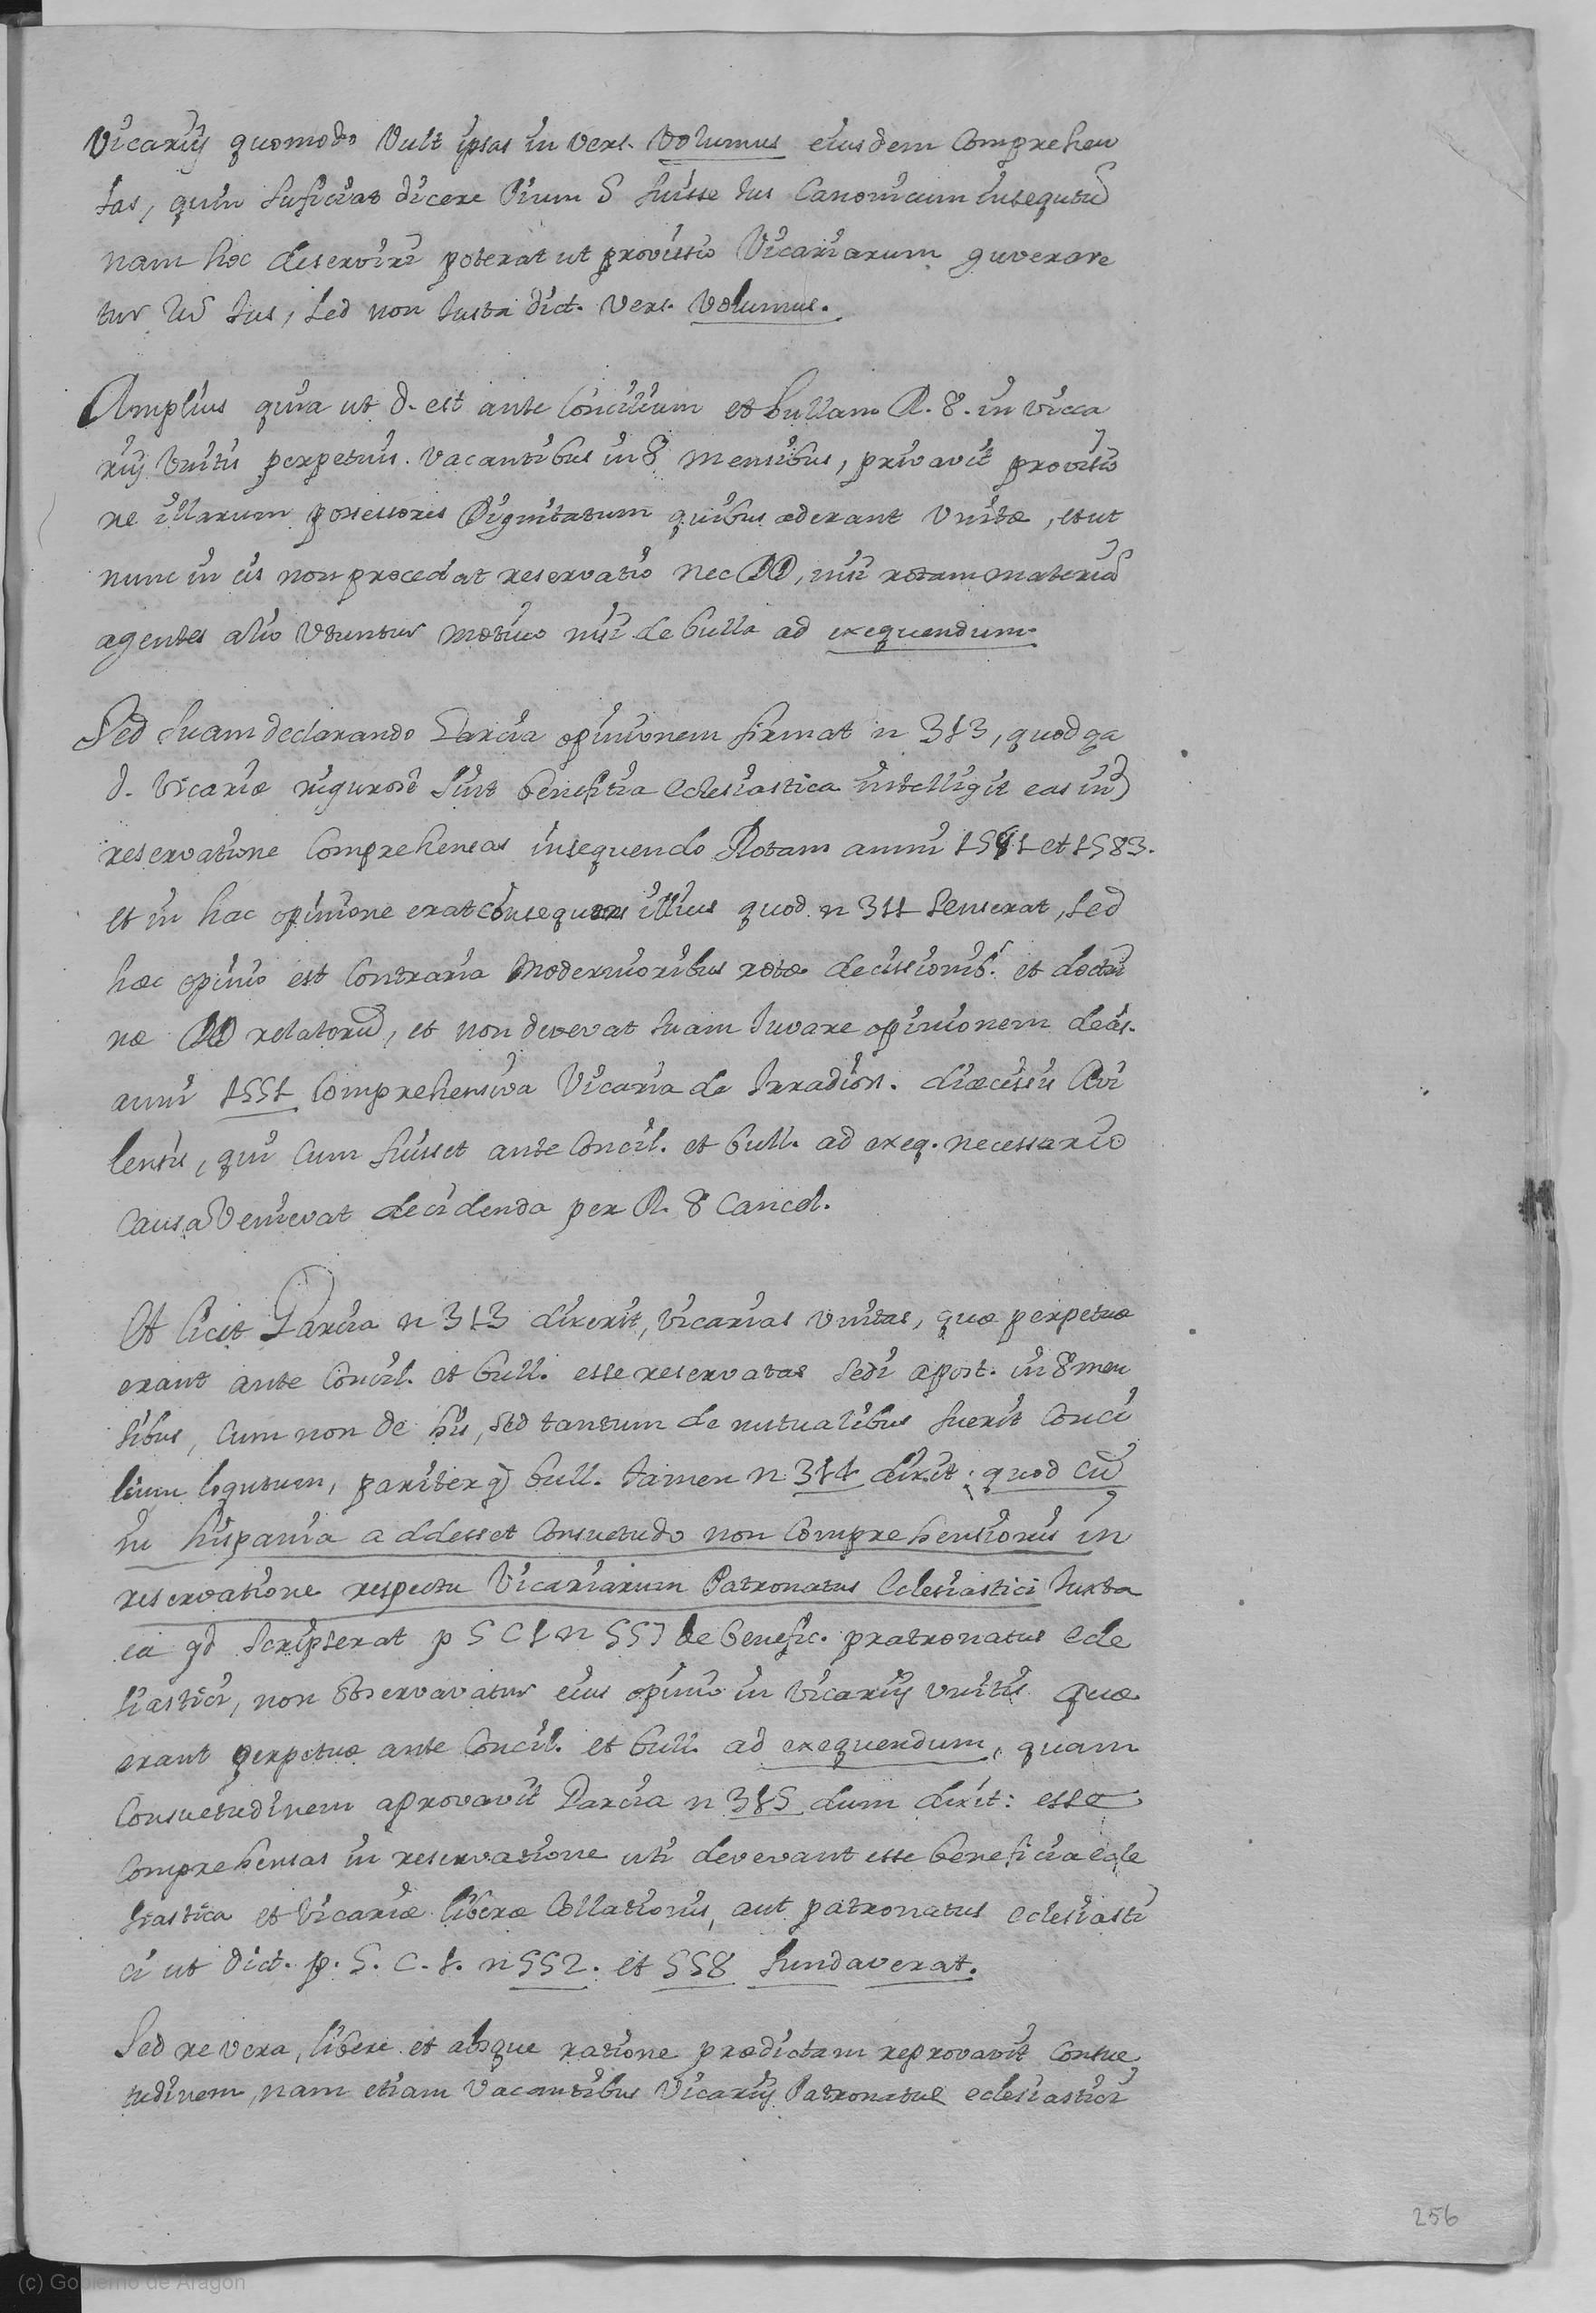 Vicarijs quomodo Vult ipsas in vers. Volumus eiusdem Comprehen
sas, quin suficiat dicere Pium 5 fuisse Ius Canonicum insequtū
nam hoc deservire poterat ut provisio Vicariarum guverare
tur Ius, sed non Iusta dict. vers. Volumus.
Amplius quia ut d. est ante Concilium et bullam R. 8. in vicca
rijs Unitis perpetuis. vacantibus in 8 mensibus, privavit provisio
ne illarum possessores Dignitatum quibus aderant Unitæ, et ut
nunc in eis non procedat reservatio nec DD, nisi rotam materiā
agentes alio Utuntur motivo nisi de bulla ad exequendum.
Sed suam declarando Garcia opinionem firmat n 313, quod qa
d. Vicariæ rigurose sint benefitia eclesiastica intelligit eas in
reservatione Comprehensas insequendo Rotam anni 1581 et 1583.
et in hac opinione erat consequens illius quod n 311 senserat, sed
hæc opinio est Contraria Modernioribus rotæ decissionib. et doctri
næ DD relatorū, et non devevat suam Iuvare opinionem decis.
anni 1551 Comprehensiva Vicaria de Irradion. diæcesis Avi
lensis, qui Cum fuisset ante Concil. et bull. ad exeq. necessario
Causa Venievat decidenda per R. 8 Cancel.
Et licet Garcia n 313 dixerit, Vicarias Unitas, quæ perpetuæ
erant ante Concil. et bull. esse reservatas Sedi apost. in 8 men
sibus, Cum non de his, sed tantum de nutualibus fuerit Conci
lium loqutum, pariter q bull. tamen n 314 dixit: quod cū
in hispania addesset Consuetudo non Comprehensionis in
reservatione respectu Vicariarum Patronatus Eclesiastici Iuxta
ea qd scripserat p 5 C 1 n 557 de benefic. pratronatus ecle
siastici, non observavatur eius opinio in Vicarijs Unitis quæ
erant perpetuæ ante Concil. et bull. ad exequendum, quam
Consuetudinem aprovavit Garcia n 315 dum dixit: esse
Comprehensas in reservatione uti devevant esse beneficia ecle
siastica et Vicariæ liberæ Collationis, aut patronatus eclesiasti
ci ut dict. p. 5. C. 1. n 552. et 558 fundaverat.
Sed re vera, libere et absque ratione prædictam reprovavit Consue
tudinem, nam etiam Vacantibus Vicarijs Patronatus eclesiastici
256
(c) Gobierno de Aragón